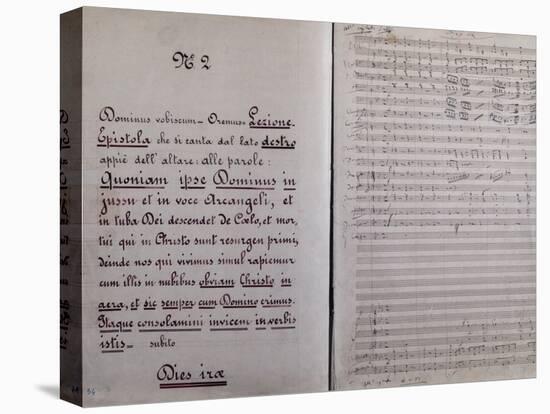 Nº 2
Dominus vobiscum - Oremus - Lezione.
Epistola che si canta dal lato destro
appiè dell' altare: alle parole:
Quoniam ipse Dominus in
jussu et in voce Arcangeli, et
in tuba Dei descendet de Cœlo, et mor,
tui qui in Christo sunt resurgen primi,
deinde nos qui vivimus simul rapiemur
cum illis in nubibus obviam Christo in
aera, et sic semper cum Domino erimus.
Itaque consolamini invicem in verbis
istis - subito
Dies iræ